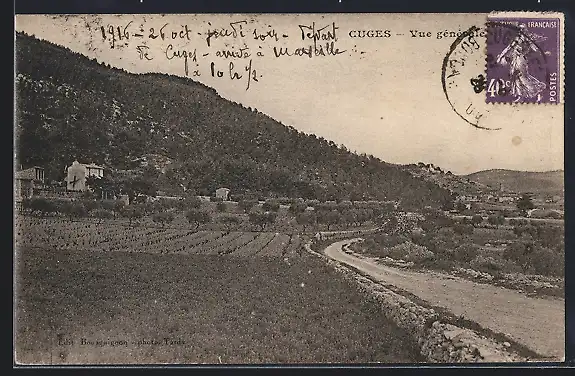 1916 - 26 oct - jeudi soir - Départ
de Cuges - arrivé à Marseille
à 10h 1/2
CUGES - Vue générale
RÉPUBLIQUE FRANÇAISE
40c
POSTES
Edit. Bourguignon - photo. Tardy